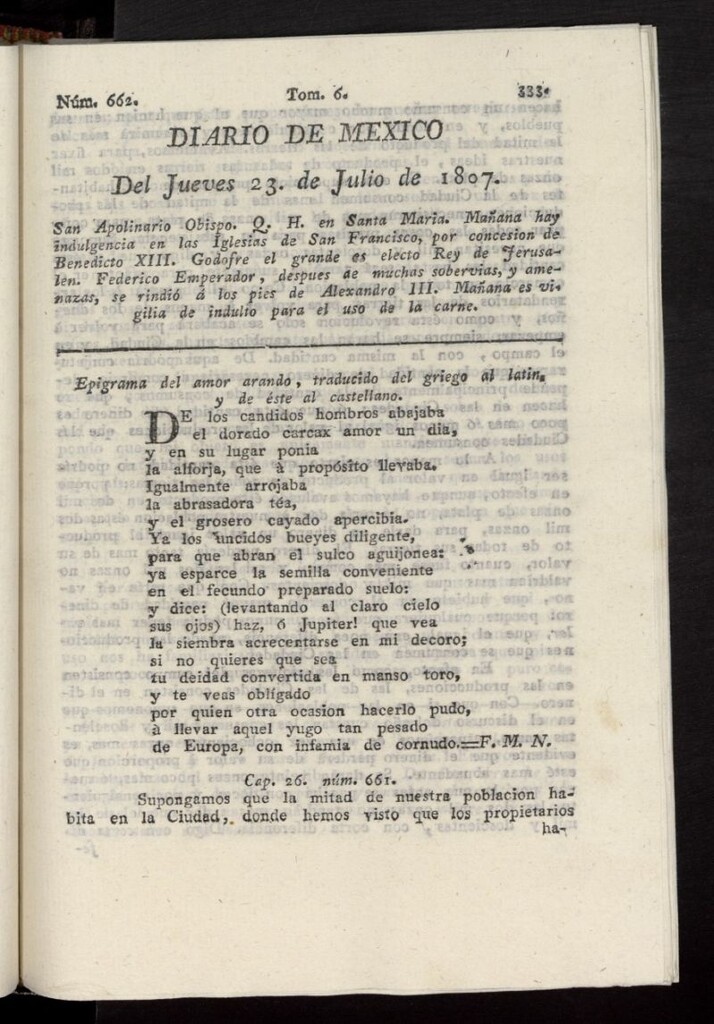 Núm. 662. Tom. 6. 333.
DIARIO DE MEXICO
Del Jueves 23. de Julio de 1807.
San Apolinario Obispo. Q. H. en Santa Maria. Mañana hay
indulgencia en las Iglesias de San Francisco, por concesion de
Benedicto XIII. Godofre el grande es electo Rey de Jerusa-
len. Federico Emperador, despues de muchas sobervias, y ame-
nazas, se rindió á los pies de Alexandro III. Mañana es vi-
gilia de indulto para el uso de la carne.
Epigrama del amor arando, traducido del griego al latin,
y de éste al castellano.
DE los candidos hombros abajaba
el dorado carcax amor un dia,
y en su lugar ponia
la alforja, que à propósito llevaba.
Igualmente arrojaba
la abrasadora téa,
y el grosero cayado apercibia.
Ya los uncidos bueyes diligente,
para que abran el sulco aguijonea:
ya esparce la semilla conveniente
en el fecundo preparado suelo:
y dice: (levantando al claro cielo
sus ojos) haz, ó Jupiter! que vea
la siembra acrecentarse en mi decoro;
si no quieres que sea
tu deidad convertida en manso toro,
y te veas obligado
por quien otra ocasion hacerlo pudo,
à llevar aquel yugo tan pesado
de Europa, con infamia de cornudo.=F. M. N.
Cap. 26. núm. 661.
Supongamos que la mitad de nuestra poblacion ha-
bita en la Ciudad, donde hemos visto que los propietarios
ha-